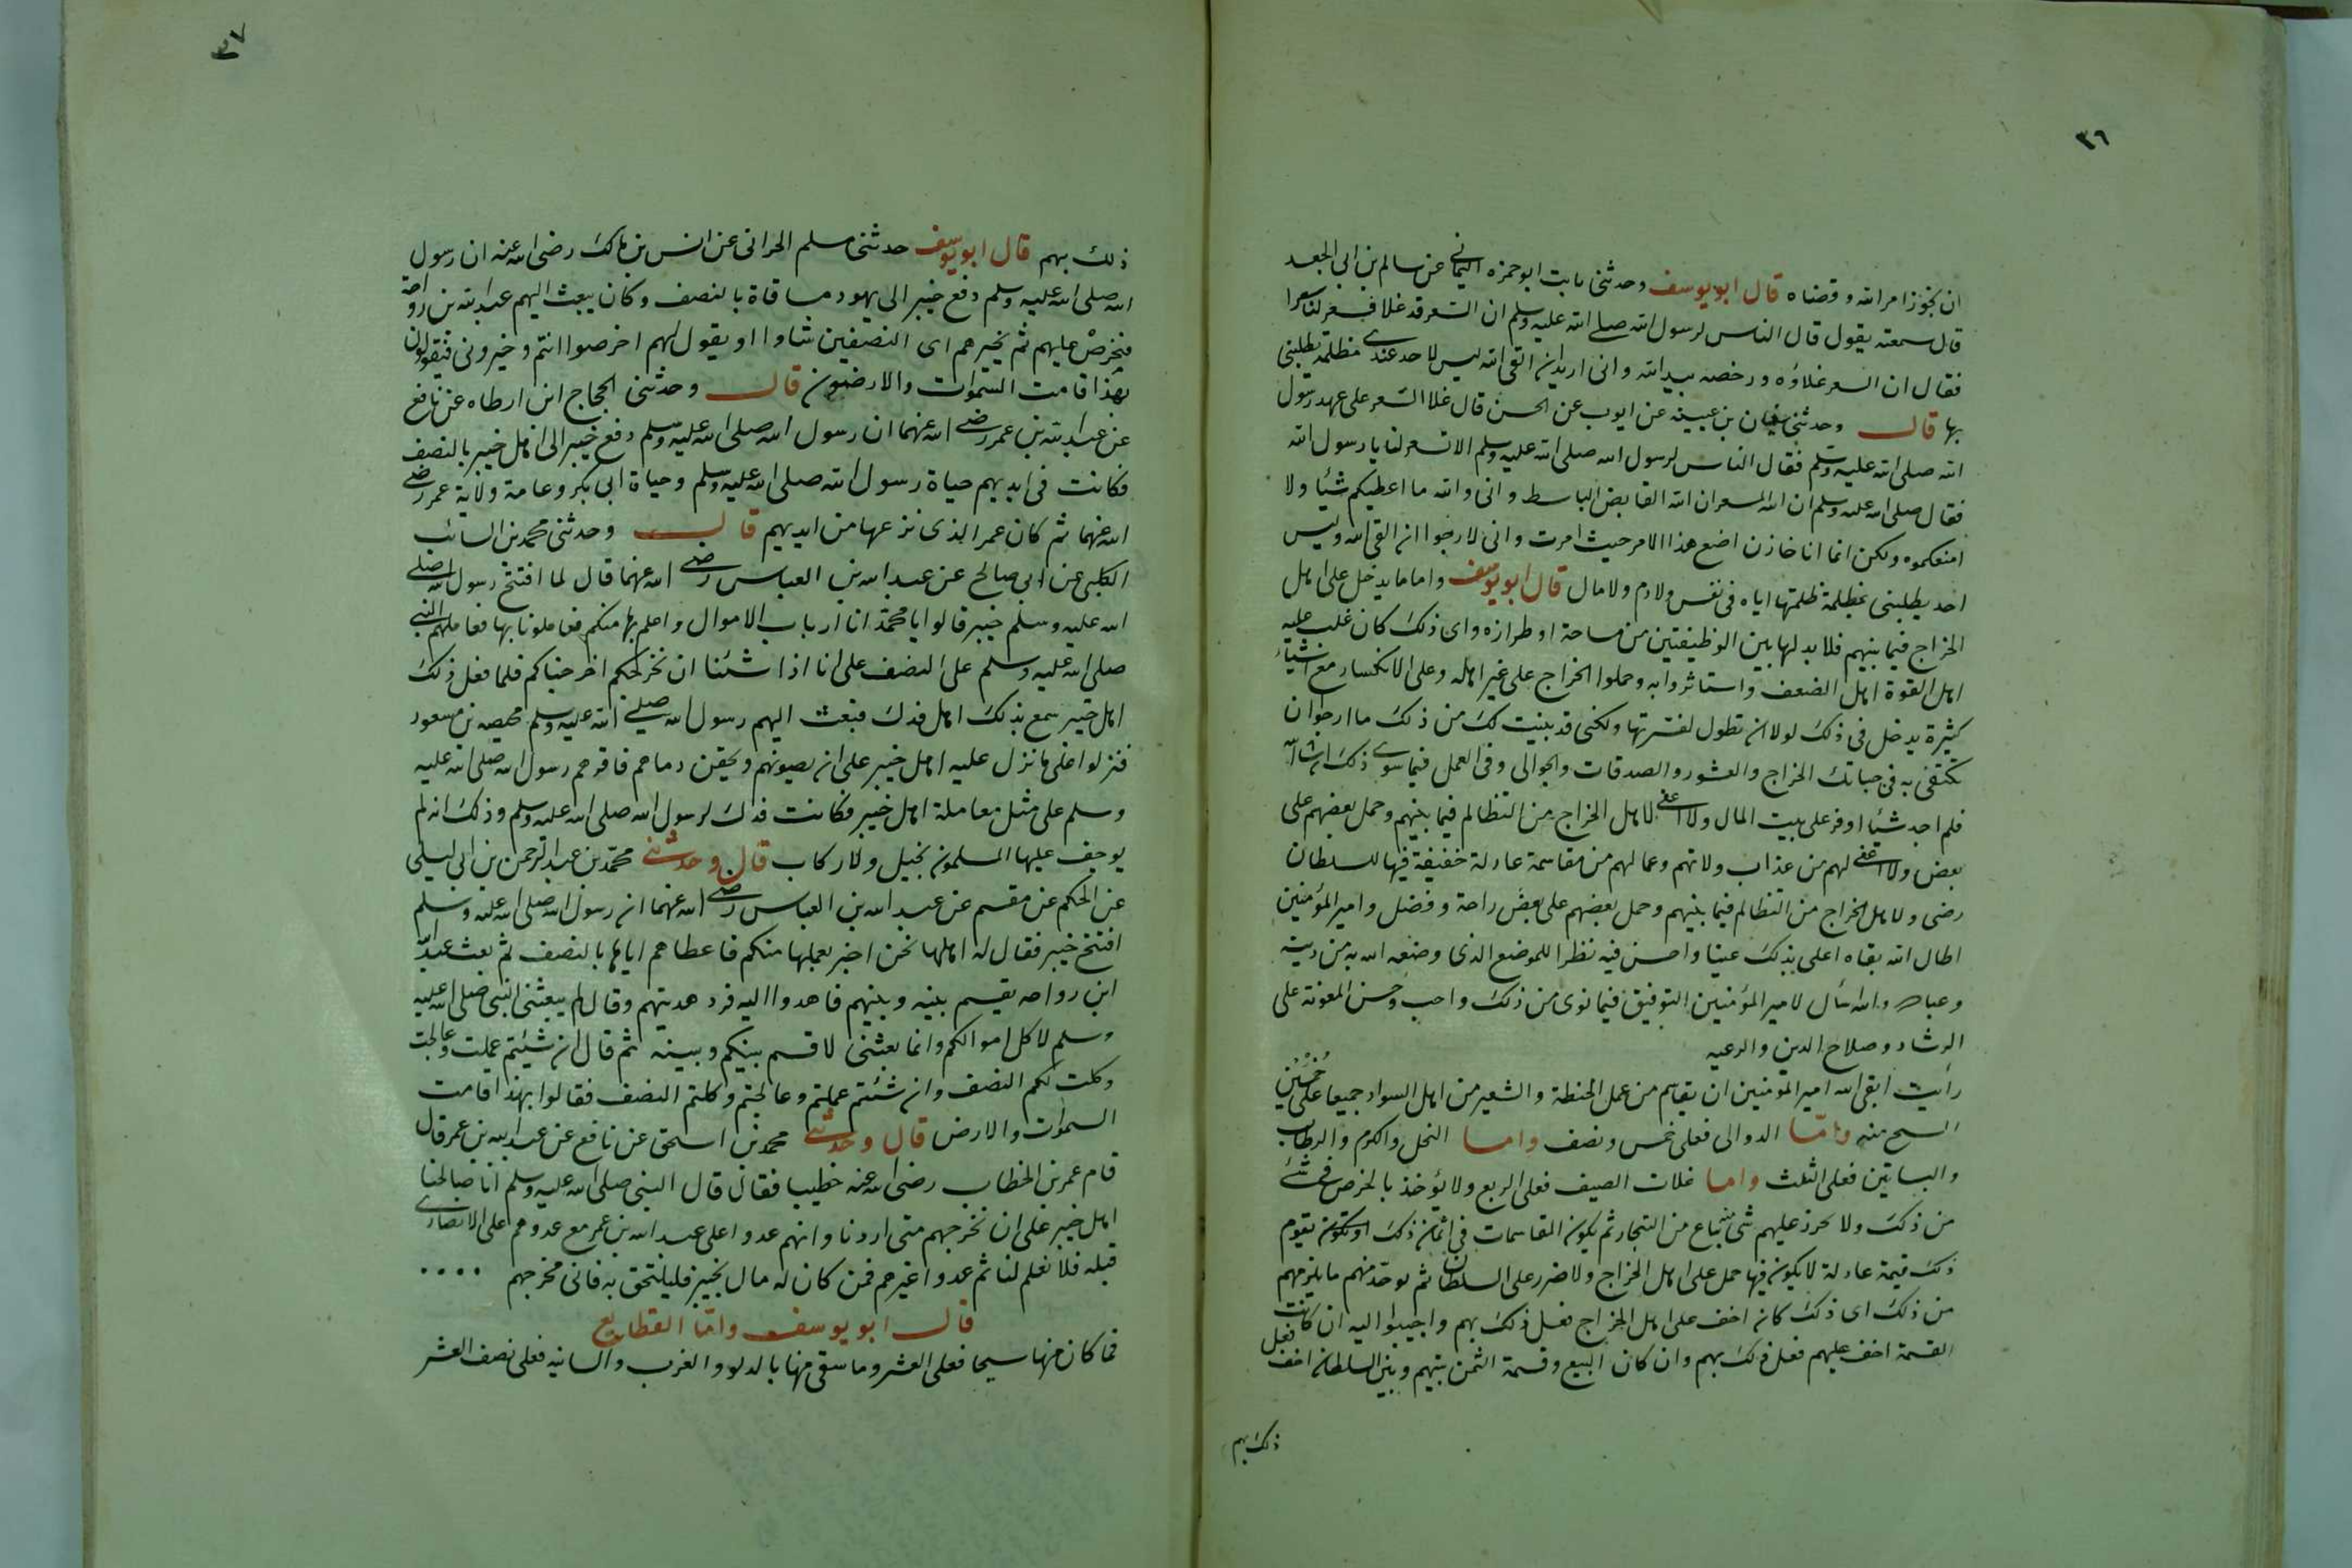 ٣٦
ان نجوز امر الله وقضاه قال ابو يوسف وحدثنى ثابت ابو حمزه اليمانى عن سالم بن ابى الجعد
قال سمعته يقول قال الناس لرسول الله صلى الله عليه وسلم ان السعر قد غلا فسعر لنا سعرا
فقال ان السعر غلاؤه ورخصه بيد الله وانى اريد ان القى الله ليس لاحد عندى مظلمة يطلبنى
بها قال وحدثنى سفيان بن عيينه عن ايوب عن الحسن قال غلا السعر على عهد رسول
الله صلى الله عليه وسلم فقال الناس لرسول الله صلى الله عليه وسلم الا تسعر لنا يا رسول الله
فقال صلى الله عليه وسلم ان الله المسعر ان الله القابض الباسط وانى والله ما اعطيكم شيئا ولا
امنعكموه ولكن انما انا خازن اضع هذا الامر حيث امرت وانى لارجوا ان القى الله وليس
احد يطلبنى بمظلمة ظلمتها اياه فى نفس ولا دم ولا مال قال ابو يوسف واما ما يدخل على اهل
الخراج فيما بينهم فلا بد لها بين الوظيفتين من مساحة او طرازه واى ذلك كان غلب عليه
اهل القوة اهل الضعف واستاثروا به وحملوا الخراج على غير اهله وعلى الانكسار مع اشياء
كثيرة يدخل فى ذلك لولا ان تطول لفسرتها ولكنى قد بينت لك من ذلك ما ارجوا ان
تكتفى به فى جباتك الخراج والعشور والصدقات والجوالى وفى العمل فيما سوى ذلك ان شا الله
فلم اجد شيئا اوفر على بيت المال ولا اعفى لاهل الخراج من التظالم فيما بينهم وحمل بعضهم على
بعض ولا اعفى لهم من عذاب ولاتهم وعمالهم من مقاسمة عادلة خفيفة فيها للسلطان
رضى ولاهل الخراج من التظالم فيما بينهم وحمل بعضهم على بعض راحة وفضل وامير المؤمنين
اطال الله بقاه اعلى بذلك عينا واحسن فيه نظرا للموضع الذى وضعه الله به من دينه
وعباده والله اسأل لامير المؤمنين التوفيق فيما نوى من ذلك واحب وحسن المعونة على
الرشاد وصلاح الدين والرعيه
رأيت ابقى الله امير المؤمنين ان يقاسم من عمل الحنطة والشعير من اهل السواد جميعا على خُمُسَين
السيح منه واما الدوالى فعلى خمس ونصف واما النخل والكرم والرطاب
والبساتين فعلى الثلث واما غلات الصيف فعلى الربع ولا يؤخذ بالخرص فى شئ
من ذلك ولا يحرز عليهم شئ منه يباع من التجار ثم يكون المقاسمات فى اثمان ذلك او يكون يقوم
ذلك قيمة عادلة لا يكون فيها حمل على اهل الخراج ولا ضرر على السلطان ثم يوخذ منهم ما يلزمهم
من ذلك اى ذلك كان اخف على اهل الخراج فعل ذلك بهم واجيبوا اليه ان كانت
القسمة اخف عليهم فعل ذلك بهم وان كان البيع وقسمة الثمن بينهم وبين السلطان اخف فعل
ذلك بهم
٣٧
ذلك بهم قال ابو يوسف حدثنى مسلم الحرانى عن انس بن مالك رضى الله عنه ان رسول
الله صلى الله عليه وسلم دفع خيبر الى يهود مساقاة بالنصف وكان يبعث اليهم عبد الله بن رواحة
فيخرص عليهم ثم يخيرهم اى النصفين شاوا او يقول لهم اخرصوا انتم وخيرونى فيقولون
بهذا قامت السموات والارضون قال وحدثنى الحجاج ابن ارطاه عن نافع
عن عبد الله بن عمر رضى الله عنهما ان رسول الله صلى الله عليه وسلم دفع خيبر الى اهل خيبر بالنصف
فكانت فى ايديهم حياة رسول الله صلى الله عليه وسلم وحياة ابى بكر وعامة ولاية عمر رضى
الله عنهما ثم كان عمر الذى نزعها من ايديهم قال وحدثنى محمد بن السائب
الكلبى عن ابى صالح عن عبد الله بن العباس رضى الله عنهما قال لما افتتح رسول الله صلى
الله عليه وسلم خيبر قالوا يا محمد انا ارباب الاموال واعلم بها منكم فعاملونا بها فعاملهم النبى
صلى الله عليه وسلم على النصف على انا اذا شئنا ان نخرجكم اخرجناكم فلما فعل ذلك
اهل خيبر سمع بذلك اهل فدك فبعث اليهم رسول الله صلى الله عليه وسلم محيصه بن مسعود
فنزلوا على ما نزل عليه اهل خيبر على ان يصونهم ويحقن دماهم فاقرهم رسول الله صلى الله عليه
وسلم على مثل معاملة اهل خيبر فكانت فدك لرسول الله صلى الله عليه وسلم وذلك انه لم
يوجف عليها المسلمون بخيل ولا ركاب قال وحدثنى محمد بن عبد الرحمن بن ابى ليلى
عن الحكم عن مقسم عن عبد الله بن العباس رضى الله عنهما ان رسول الله صلى الله عليه وسلم
افتتح خيبر فقال له اهلها نحن اخبر بعملها منكم فاعطاهم اياها بالنصف ثم بعث عبد الله
ابن رواحه يقسم بينه وبينهم فاهدوا اليه فرد هديتهم وقال لم يبعثنى النبى صلى الله عليه
وسلم لاكل اموالكم وانما بعثنى لاقسم بينكم وبينه ثم قال ان شئتم عملت وعالجت
وكلت لكم النصف وان شئتم عملتم وعالجتم وكلتم النصف فقالوا بهذا قامت
السموات والارض قال وحدثنى محمد بن اسحق عن نافع عن عبد الله بن عمر قال
قام عمر بن الخطاب رضى الله عنه خطيبا فقال قال النبى صلى الله عليه وسلم انا صالحنا
اهل خيبر على ان نخرجهم متى اردنا وانهم عدوا على عبد الله بن عمر مع عدوهم على الانصارى
قبله فلا نعلم لنا ثم عدوا غيرهم فمن كان له مال بخيبر فليلتحق به فانى مخرجهم ....
قال ابو يوسف واما القطايع
فما كان منها سيحا فعلى العشر وما سقى منها بالدلو والغرب والسانيه فعلى نصف العشر